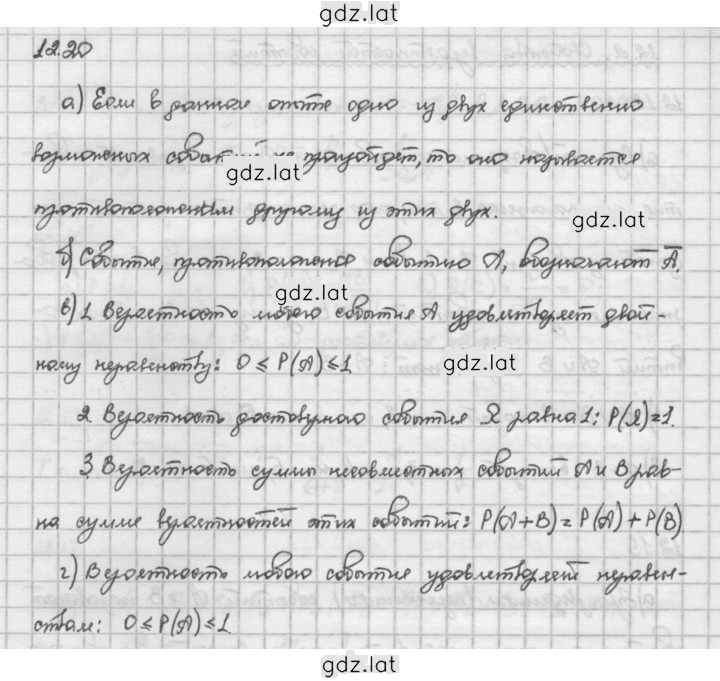 gdz.lat
12.20
а) Если в данном опыте одно из двух единственно
возможных событий не произойдет, то оно называется
gdz.lat
противоположным другому из этих двух.
gdz.lat
б) Событие, противоположное событию A, обозначают Ā.
gdz.lat
в) 1 Вероятность любого события A удовлетворяет двой-
ному неравенству: 0 ≤ P(A) ≤ 1
gdz.lat
2 Вероятность достовумого события Ω равна 1: P(Ω)=1.
3 Вероятность суммы несовместных событий A и B рав-
на сумме вероятностей этих событий: P(A+B) = P(A) + P(B)
г) Вероятность любого события удовлетворяет неравен-
ствам: 0 ≤ P(A) ≤ 1
gdz.lat